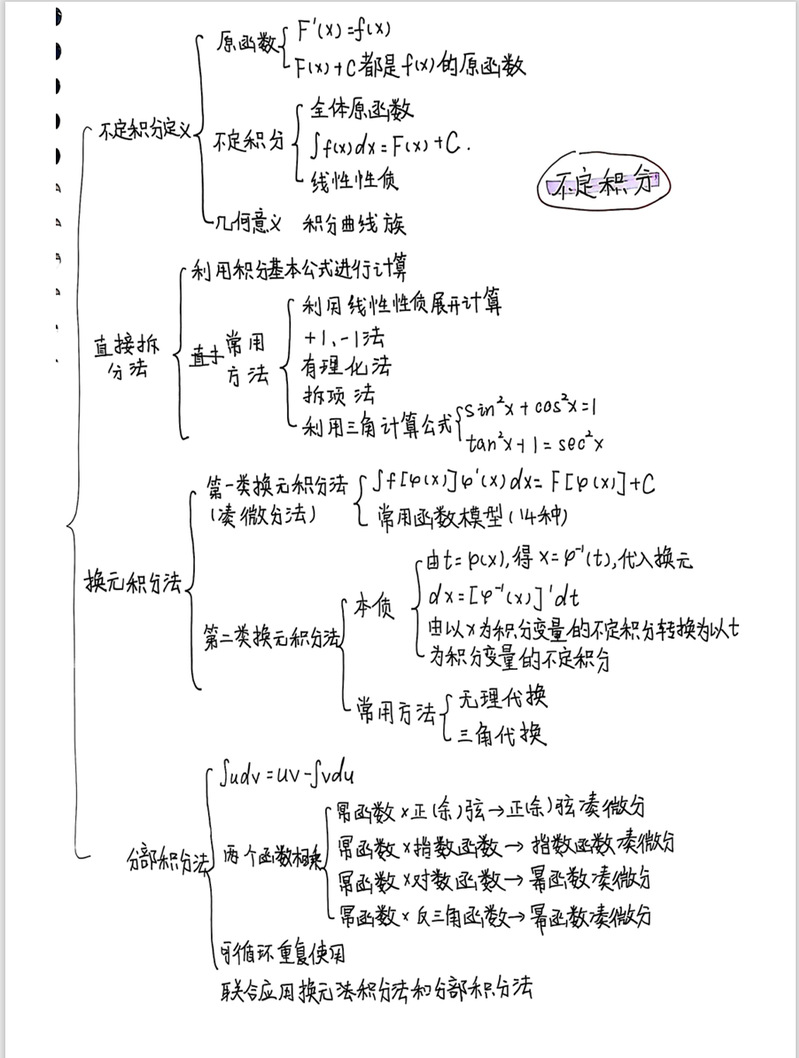 原函数
F'(x)=f(x)
F(x)+C都是f(x)的原函数
不定积分定义
不定积分
全体原函数
∫f(x)dx=F(x)+C.
线性性质
几何意义 积分曲线族
不定积分
利用积分基本公式进行计算
直接拆
分法
常用
方法
利用线性性质展开计算
+1、-1法
有理化法
拆项法
利用三角计算公式
sin²x+cos²x=1
tan²x+1=sec²x
换元积分法
第一类换元积分法
(凑微分法)
∫f[φ(x)]φ'(x)dx=F[φ(x)]+C
常用函数模型(14种)
第二类换元积分法
本质
由t=φ(x),得x=φ⁻¹(t),代入换元
dx=[φ⁻¹(x)]'dt
由以x为积分变量的不定积分转换为以t
为积分变量的不定积分
常用方法
无理代换
三角代换
分部积分法
∫udv=uv-∫vdu
两个函数相乘
幂函数×正(余)弦→正(余)弦凑微分
幂函数×指数函数→指数函数凑微分
幂函数×对数函数→幂函数凑微分
幂函数×反三角函数→幂函数凑微分
可循环重复使用
联合应用换元法积分法和分部积分法